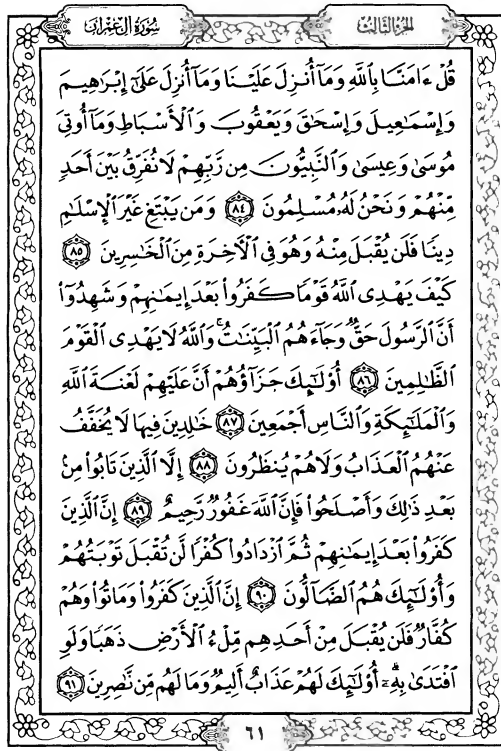 سُورَةُ آلِ عِمْرَانَ
الجُزْءُ الثَّالِثُ
قُلْ ءَامَنَّا بِاللَّهِ وَمَآ أُنزِلَ عَلَيْنَا وَمَآ أُنزِلَ عَلَىٰٓ إِبْرَٰهِيمَ
وَإِسْمَٰعِيلَ وَإِسْحَٰقَ وَيَعْقُوبَ وَالْأَسْبَاطِ وَمَآ أُوتِىَ
مُوسَىٰ وَعِيسَىٰ وَالنَّبِيُّونَ مِن رَّبِّهِمْ لَا نُفَرِّقُ بَيْنَ أَحَدٍ
مِّنْهُمْ وَنَحْنُ لَهُۥ مُسْلِمُونَ ٨٤ وَمَن يَبْتَغِ غَيْرَ الْإِسْلَٰمِ
دِينًا فَلَن يُقْبَلَ مِنْهُ وَهُوَ فِى الْأَخِرَةِ مِنَ الْخَٰسِرِينَ ٨٥
كَيْفَ يَهْدِى اللَّهُ قَوْمًا كَفَرُوا۟ بَعْدَ إِيمَٰنِهِمْ وَشَهِدُوٓا۟
أَنَّ الرَّسُولَ حَقٌّ وَجَآءَهُمُ الْبَيِّنَٰتُ ۚ وَاللَّهُ لَا يَهْدِى الْقَوْمَ
الظَّٰلِمِينَ ٨٦ أُو۟لَٰٓئِكَ جَزَآؤُهُمْ أَنَّ عَلَيْهِمْ لَعْنَةَ اللَّهِ
وَالْمَلَٰٓئِكَةِ وَالنَّاسِ أَجْمَعِينَ ٨٧ خَٰلِدِينَ فِيهَا لَا يُخَفَّفُ
عَنْهُمُ الْعَذَابُ وَلَا هُمْ يُنظَرُونَ ٨٨ إِلَّا الَّذِينَ تَابُوا۟ مِنۢ
بَعْدِ ذَٰلِكَ وَأَصْلَحُوا۟ فَإِنَّ اللَّهَ غَفُورٌ رَّحِيمٌ ٨٩ إِنَّ الَّذِينَ
كَفَرُوا۟ بَعْدَ إِيمَٰنِهِمْ ثُمَّ ازْدَادُوا۟ كُفْرًا لَّن تُقْبَلَ تَوْبَتُهُمْ
وَأُو۟لَٰٓئِكَ هُمُ الضَّآلُّونَ ٩٠ إِنَّ الَّذِينَ كَفَرُوا۟ وَمَاتُوا۟ وَهُمْ
كُفَّارٌ فَلَن يُقْبَلَ مِنْ أَحَدِهِم مِّلْءُ الْأَرْضِ ذَهَبًا وَلَوِ
افْتَدَىٰ بِهِۦٓ ۗ أُو۟لَٰٓئِكَ لَهُمْ عَذَابٌ أَلِيمٌ وَمَا لَهُم مِّن نَّٰصِرِينَ ٩١
٦١